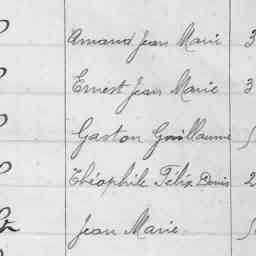 Amand Jean Marie 3
Ernest Jean Marie 3
Gaston Guillaume
Théophile Félix Denis 2
Jean Marie